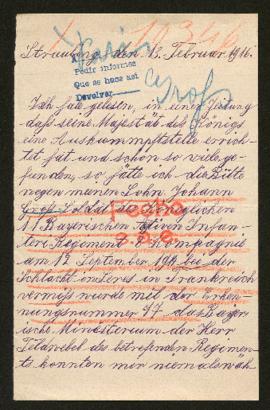 Straubing, den 13. Februar 1916.
París
Pedir informes
Que se haga así
Devolver
Groß
Ich habe gelesen, in einer Zeitung
daß seine Majestät des Königs
eine Auskunftstelle errich-
tet hat und schon so viele ge-
funden, so hätte ich die Bitte
wegen meinen Sohn Johann
Groß Soldat im Königlichen
11 Bayerischen aktiven Infan-
terie Regiment Kompagnie
am 12 September 1914 bei der
Schlacht in Frankreich
vermißt wurde mit der Erken-
nungsnummer 97, das Bayer-
ische Ministerium der Herr
Feldwebel des betreffenden Regimen-
ts konnten mir niemals
Hecho